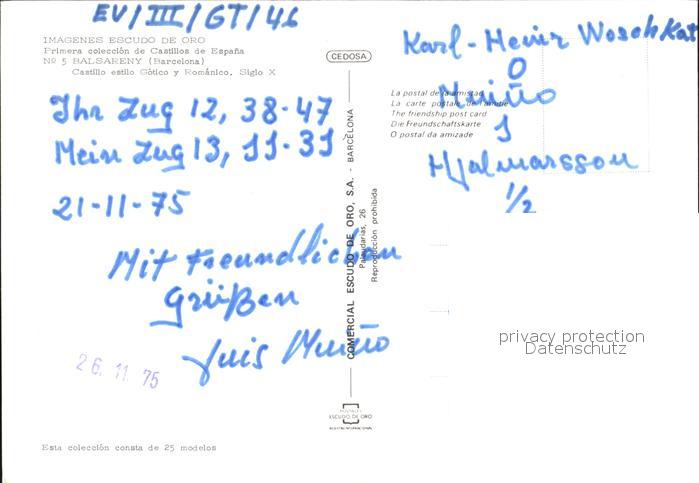 EV/III/GT/46
IMAGENES ESCUDO DE ORO
Primera colección de Castillos de España
Nº 5 BALSARENY (Barcelona)
Castillo estilo Gótico y Románico. Siglo X
CEDOSA
Karl-Heinz Woschkat
0
Muiño
1
Hjalmarsson
1/2
La postal de la amistad
La carte postale de l'amitie
The friendship post card
Die Freundschaftskarte
O postal da amizade
Ihr Zug 12, 38-47
Mein Zug 13, 11-31
21-11-75
Mit Freundlichen
Grüßen
Luis Muiño
26. 11. 75
COMERCIAL ESCUDO DE ORO, S.A. - BARCELONA
Palaudarias, 26
Reproducción prohibida
privacy protection
Datenschutz
POSTALES
ESCUDO DE ORO
Esta colección consta de 25 modelos